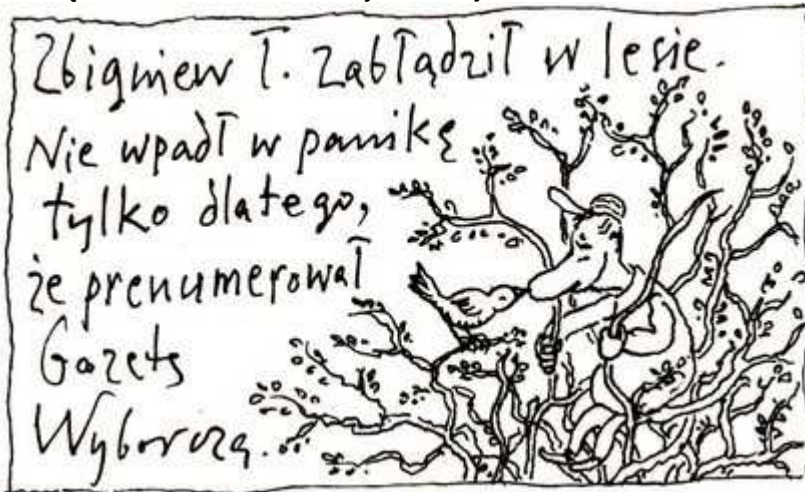 Zbigniew T. zabłądził w lesie.
Nie wpadł w panikę
tylko dlatego,
że prenumerował
Gazetę
Wyborczą.